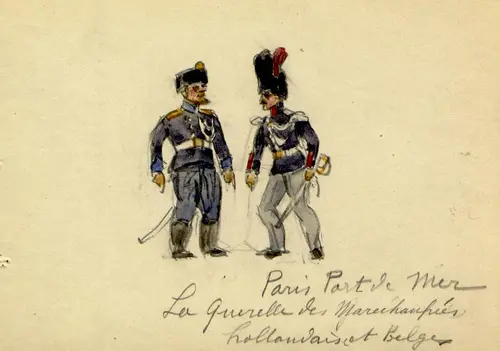 Paris Port de Mer
La Querelle des Marechaussées
hollandais et Belges